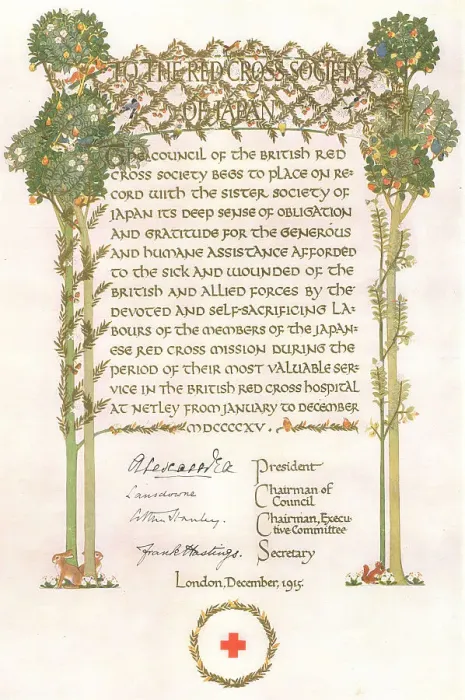 TO THE RED CROSS SOCIETY
OF JAPAN
THE COUNCIL OF THE BRITISH RED
CROSS SOCIETY BEGS TO PLACE ON RE-
CORD WITH THE SISTER SOCIETY OF
JAPAN ITS DEEP SENSE OF OBLIGATION
AND GRATITUDE FOR THE GENEROUS
AND HUMANE ASSISTANCE AFFORDED
TO THE SICK AND WOUNDED OF THE
BRITISH AND ALLIED FORCES BY THE
DEVOTED AND SELF-SACRIFICING LA-
BOURS OF THE MEMBERS OF THE JAPAN-
ESE RED CROSS MISSION DURING THE
PERIOD OF THEIR MOST VALUABLE SER-
VICE IN THE BRITISH RED CROSS HOSPITAL
AT NETLEY FROM JANUARY TO DECEMBER
MDCCCCXV.
President
Lansdowne Chairman of
Council
Arthur Stanley. Chairman, Execu-
tive Committee
Frank Hastings. Secretary
London, December, 1915.